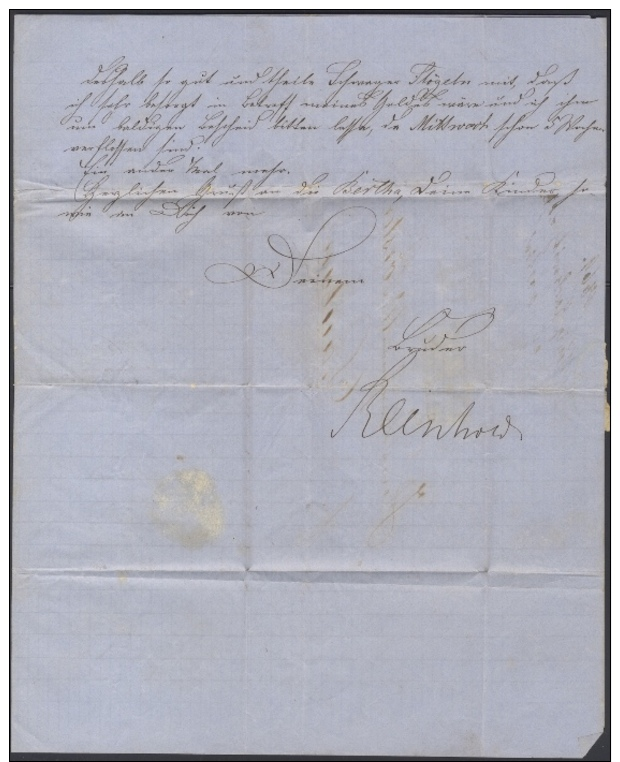 deshalb so gut und theile Schwager Kögeln mit, daß
ich sehr besorgt in Betreff meines Geldes wäre und ich ihn
um baldigen Bescheid bitten lasse, da Mittwoch schon Wochen
verflossen sind.
Ein ander Mal mehr.
Herzlichen Gruß an die Bertha, Deine Kinder, so
wie an Dich von
Deinem
Bruder
Reinhold